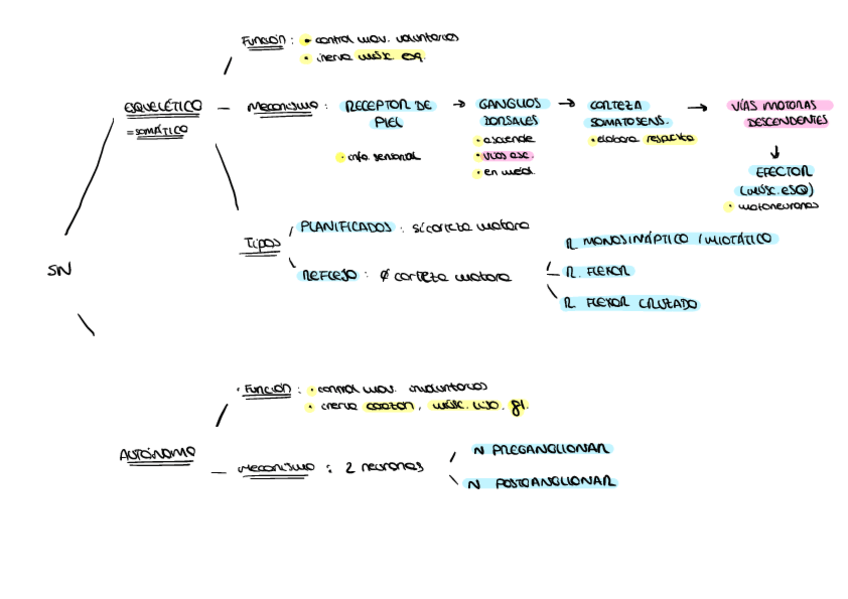 Función : • control mov. voluntarios
• inerva músc esq.
ESQUELÉTICO
= SOMÁTICO
Mecanismo : RECEPTOR DE PIEL → GANGLIOS DORSALES → CORTEZA SOMATOSENS. → VÍAS MOTORAS DESCENDENTES
• info sensorial
• asciende
• vías asc.
• en méd.
• elabora respuesta
↓
EFECTOR
(MÚSC. ESQ)
• motoneuronas
Tipos
PLANIFICADOS : sí corteza motora
REFLEJO : ∅ corteza motora
R MONOSINÁPTICO / MIOTÁTICO
R. FLEXOR
R FLEXOR CRUZADO
SN
• Función : • control mov. involuntarios
• inerva corazón, músc. liso. gl.
AUTÓNOMO
Mecanismo : 2 neuronas
N PREGANGLIONAR
N POSTGANGLIONAR